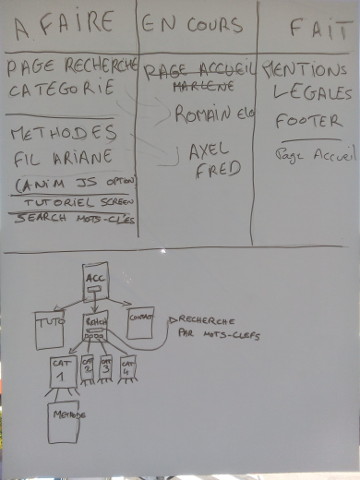 A FAIRE
EN COURS
FAIT
PAGE RECHERCHE
CATEGORIE
METHODES
FIL ARIANE
(ANIM JS OPTION)
TUTORIEL SCREEN
SEARCH MOTS-CLÉS
PAGE ACCUEIL
MARLENE
ROMAIN
AXEL
FRED
MENTIONS
LEGALES
FOOTER
Page Accueil
ACC
TUTO
CONTACT
RECHERCHE
PAR MOTS-CLEFS
CAT
1
CAT
2
CAT
3
CAT
4
METHODE